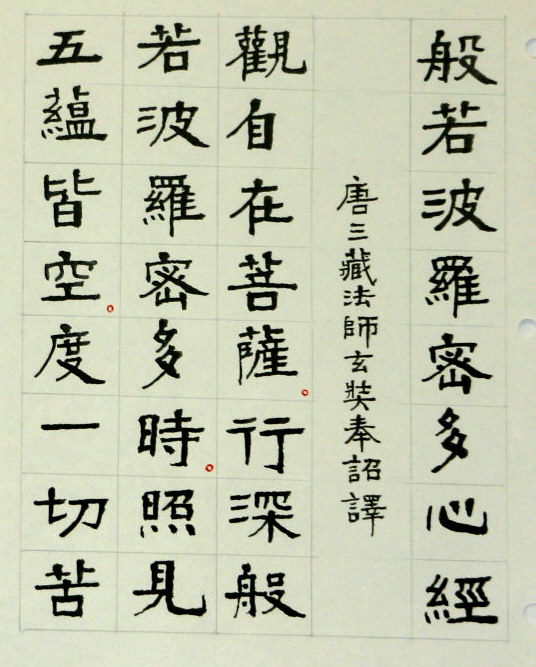 般若波羅密多心經
唐三藏法師玄奘奉詔譯
觀自在菩薩。行深般
若波羅密多時。照見
五蘊皆空。度一切苦